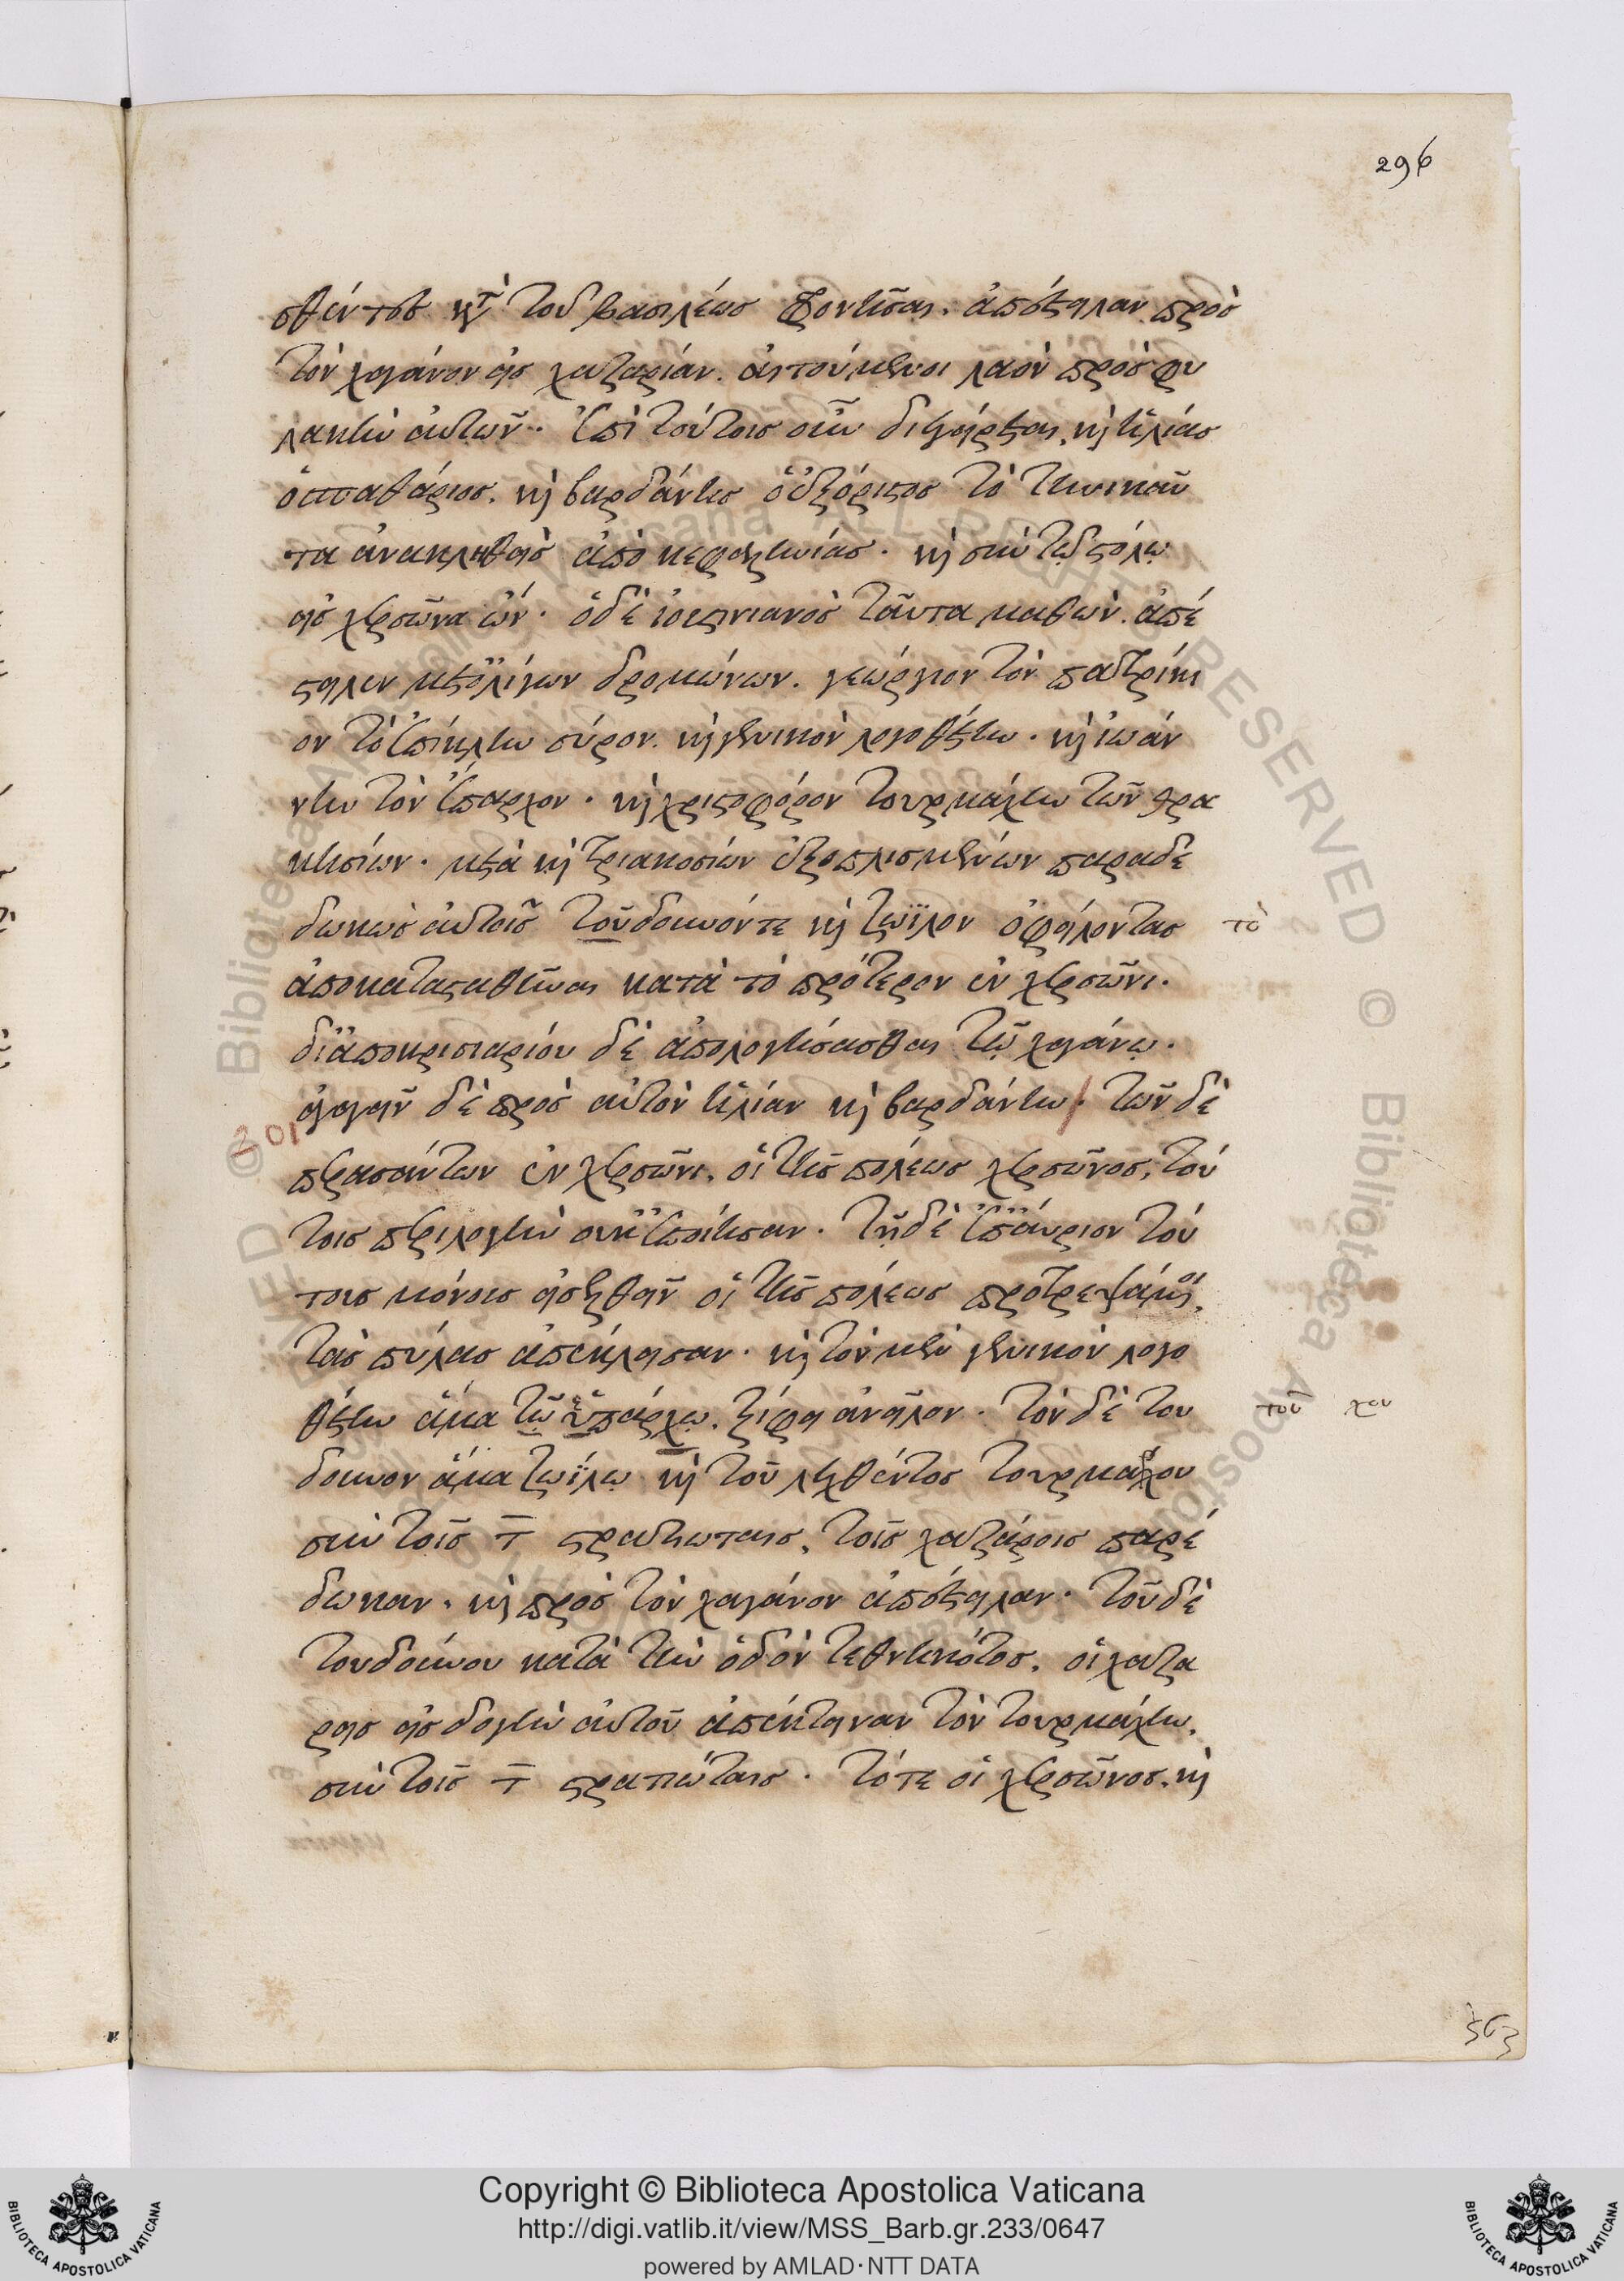 296
σθέντες κατὰ τοῦ βασιλέως φροντίσαι. ἀπέστειλαν πρὸς
τὸν χαγάνον εἰς χαζαρίαν. αἰτούμενοι λαὸν πρὸς φυ
λακὴν αὐτῶν. ἐπὶ τούτοις οὖν διεγείρεται, καὶ ἠλίας
ὁ σπαθάριος. καὶ βαρδάνης ὁ ἐξόριστος τὸ τηνικαῦ
τα ἀνακληθεὶς ἀπὸ κεφαληνίας. καὶ σὺν τῷ στόλῳ
εἰς χερσῶνα ὤν. ὁ δὲ ἰουστινιανὸς ταῦτα μαθὼν. ἀπέ
στειλεν μετ' ὀλίγων δρομώνων. γεώργιον τὸν πατρίκι
ον τὸ ἐπίκλην σύρον. καὶ γενικὸν λογοθέτην. καὶ ἰωάν
νην τὸν ἔπαρχον. καὶ χριστοφόρον τουρμάχην τῶν θρα
κησίων. μετὰ καὶ τριακοσίων ἐξοπλισμένων παραδε
δωκὼς αὐτοῖς τοῦδουνόντε καὶ ζωΐλον ὀφείλοντας τὸ
ἀποκατασταθῆναι κατὰ τὸ πρότερον ἐν χερσῶνι.
δι' ἀποκρισιαρίου δὲ ἀπολογήσασθαι τῷ χαγάνῳ.
ἀγαγεῖν δὲ πρὸς αὐτὸν ἠλίαν καὶ βαρδάνην. τῶν δὲ
301
περασάντων ἐν χερσῶνι. οἱ τῆς πόλεως χερσῶνος, τού
τοις περιλογὴν οὐκ ἐποίησαν. τῇ δὲ ἐπαύριον τού
τοις μόνοις εἰσελθεῖν οἱ τῆς πόλεως προτρεψάμενοι,
τὰς πύλας ἀπέκλεισαν. καὶ τὸν μὲν γενικὸν λογο
θέτην ἅμα τῷ ὑπάρχῳ. ξίφει ἀνεῖλον. τὸν δὲ του τοῦ χου
δουνον ἅμα ζωΐλῳ καὶ τοῦ λεχθέντος τουρμάχου
σὺν τοῖς τ̅ στρατιώταις, τοῖς χαζάροις παρέ
δωκαν. καὶ πρὸς τὸν χαγάνον ἀπέστειλαν. τοῦ δὲ
τουδούνου κατὰ τὴν ὁδὸν τεθνηκότος. οἱ χαζα
ρεις εἰς δογὴν αὐτοῦ ἀπέκτειναν τὸν τουρμάχην.
σὺν τοῖς τ̅ στρατιώταις. τότε οἱ χερσῶνος. καὶ
363
Copyright © Biblioteca Apostolica Vaticana
http://digi.vatlib.it/view/MSS_Barb.gr.233/0647
powered by AMLAD·NTT DATA
BIBLIOTECA APOSTOLICA VATICANA
BIBLIOTECA APOSTOLICA VATICANA